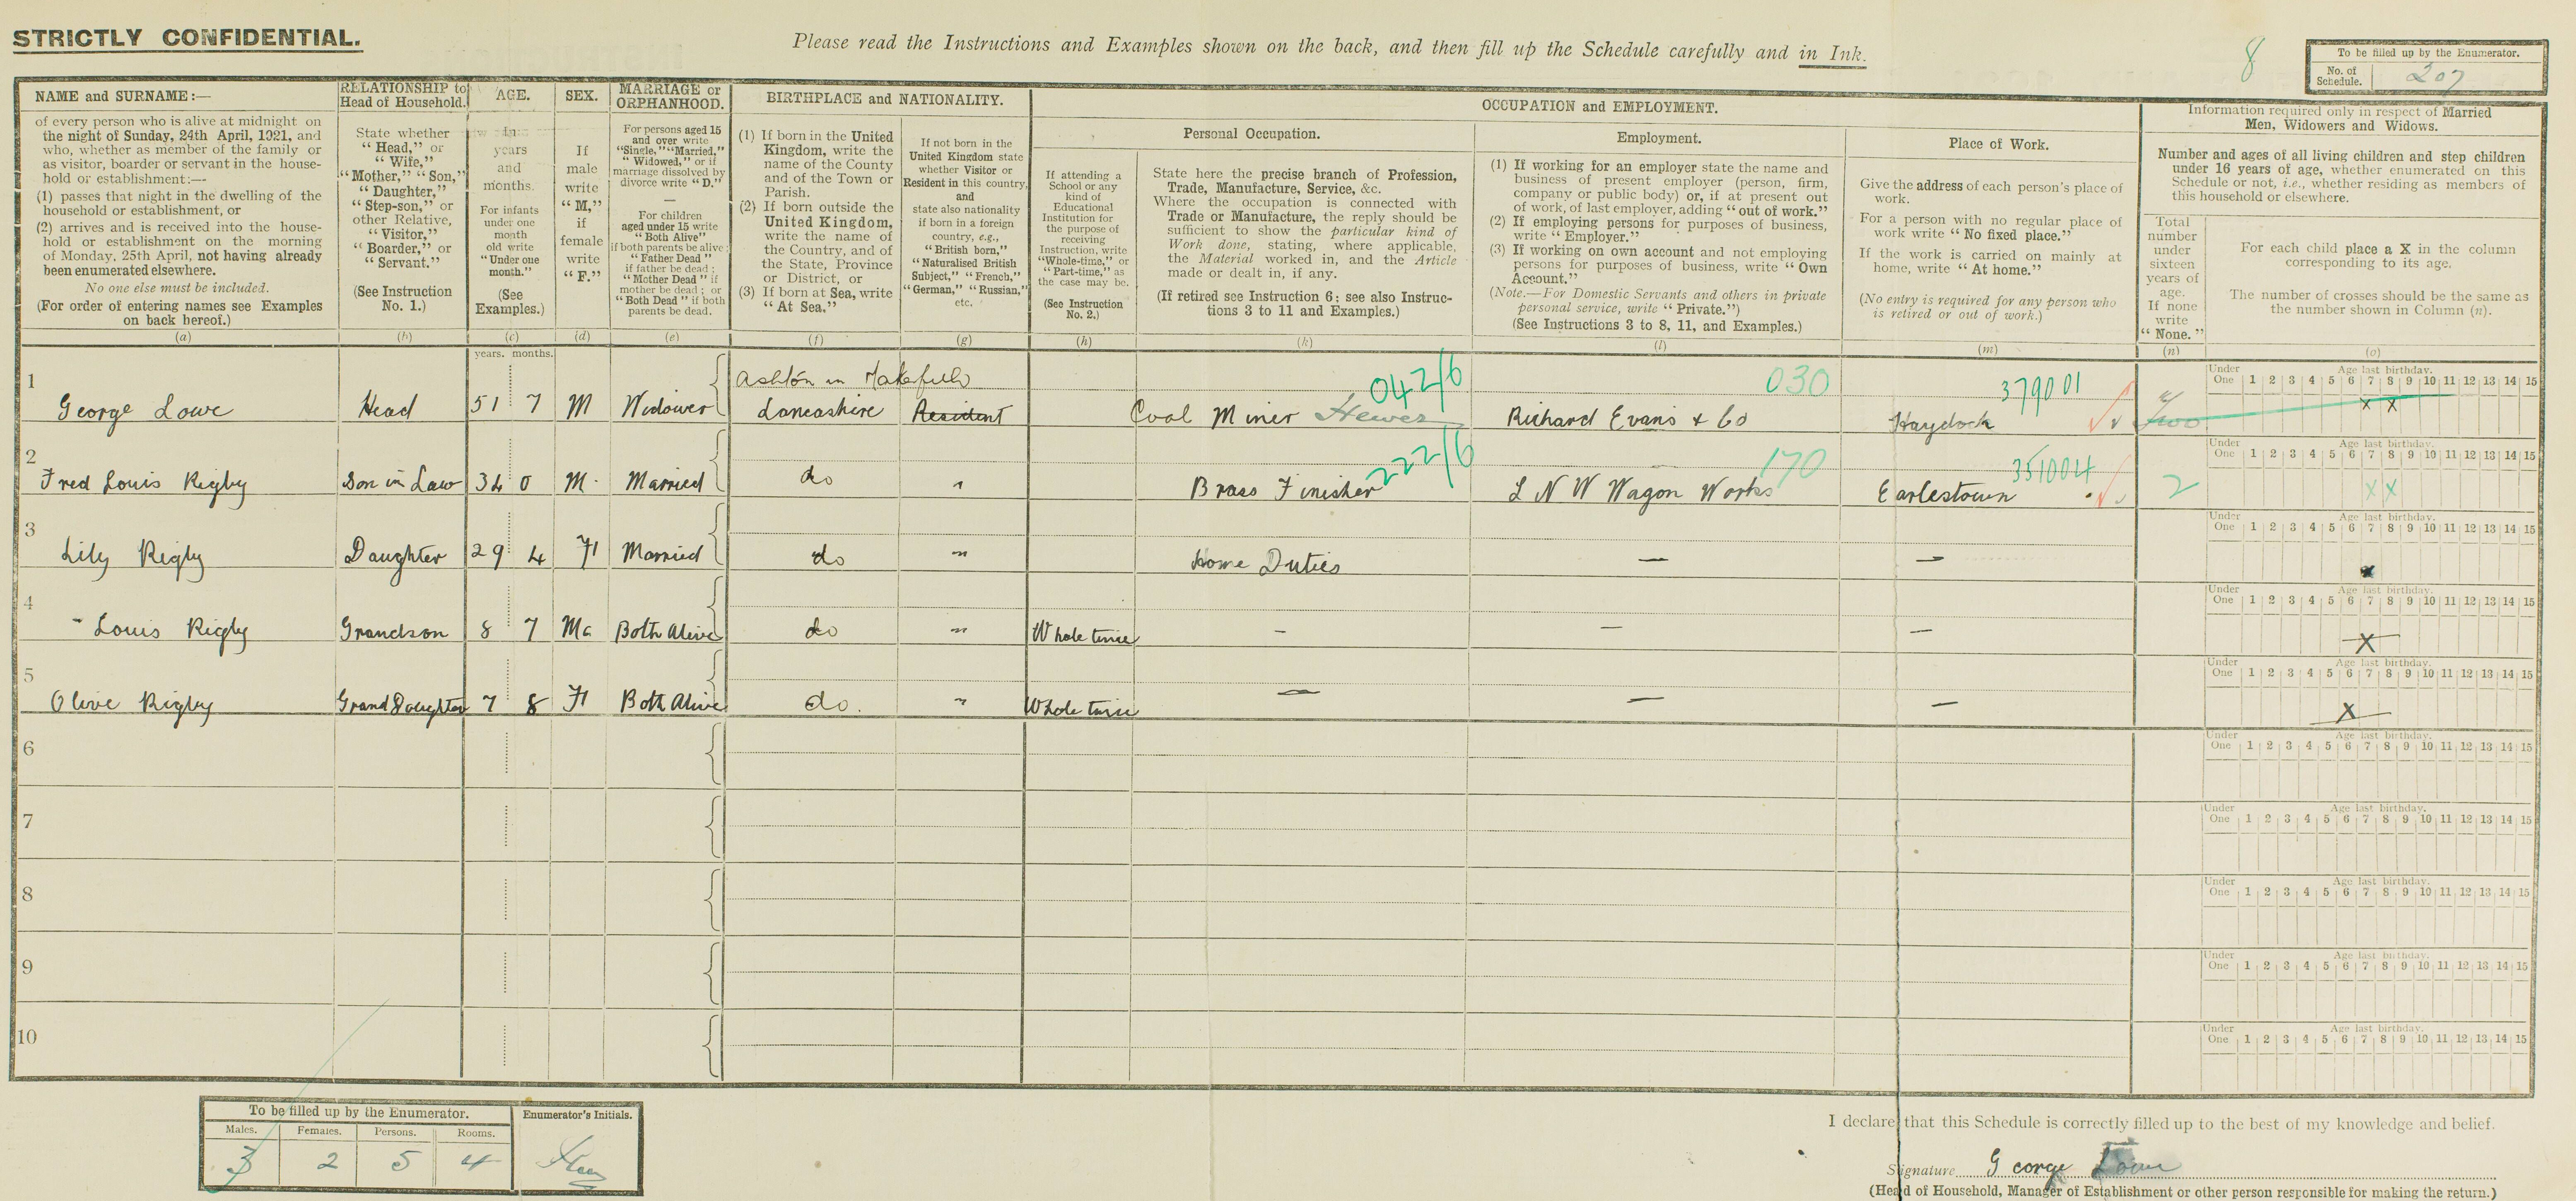 STRICTLY CONFIDENTIAL.
Please read the Instructions and Examples shown on the back, and then fill up the Schedule carefully and in Ink.
8
To be filled up by the Enumerator.
No. of Schedule. 207
NAME and SURNAME:—
of every person who is alive at midnight on
the night of Sunday, 24th April, 1921, and
who, whether as member of the family or
as visitor, boarder or servant in the house-
hold or establishment:—
(1) passes that night in the dwelling of the
household or establishment, or
(2) arrives and is received into the house-
hold or establishment on the morning
of Monday, 25th April, not having already
been enumerated elsewhere.
No one else must be included.
(For order of entering names see Examples
on back hereof.)
(a)
RELATIONSHIP to
Head of Household.
State whether
"Head," or
"Wife,"
"Mother," "Son,"
"Daughter,"
"Step-son," or
other Relative,
"Visitor,"
"Boarder," or
"Servant."
(See Instruction
No. 1.)
(b)
AGE.
in
years
and
months.
For infants
under one
month
old write
"Under one
month."
(See
Examples.)
(c)
SEX.
If
male
write
"M,"
if
female
write
"F."
(d)
MARRIAGE or
ORPHANHOOD.
For persons aged 15
and over write
"Single," "Married,"
"Widowed," or if
marriage dissolved by
divorce write "D."
—
For children
aged under 15 write
"Both Alive"
if both parents be alive;
"Father Dead"
if father be dead;
"Mother Dead" if
mother be dead; or
"Both Dead" if both
parents be dead.
(e)
BIRTHPLACE and NATIONALITY.
(1) If born in the United
Kingdom, write the
name of the County
and of the Town or
Parish.
(2) If born outside the
United Kingdom,
write the name of
the Country, and of
the State, Province
or District, or
(3) If born at Sea, write
"At Sea."
(f)
If not born in the
United Kingdom state
whether Visitor or
Resident in this country,
and
state also nationality
if born in a foreign
country, e.g.,
"British born,"
"Naturalised British
Subject," "French,"
"German," "Russian,"
etc.
(g)
OCCUPATION and EMPLOYMENT.
If attending a
School or any
kind of
Educational
Institution for
the purpose of
receiving
Instruction, write
"Whole-time," or
"Part-time," as
the case may be.
(See Instruction
No. 2.)
(h)
Personal Occupation.
State here the precise branch of Profession,
Trade, Manufacture, Service, &c.
Where the occupation is connected with
Trade or Manufacture, the reply should be
sufficient to show the particular kind of
Work done, stating, where applicable,
the Material worked in, and the Article
made or dealt in, if any.
(If retired see Instruction 6; see also Instruc-
tions 3 to 11 and Examples.)
(k)
Employment.
(1) If working for an employer state the name and
business of present employer (person, firm,
company or public body) or, if at present out
of work, of last employer, adding "out of work."
(2) If employing persons for purposes of business,
write "Employer."
(3) If working on own account and not employing
persons for purposes of business, write "Own
Account."
(Note.—For Domestic Servants and others in private
personal service, write "Private.")
(See Instructions 3 to 8, 11, and Examples.)
(l)
Place of Work.
Give the address of each person's place of
work.
For a person with no regular place of
work write "No fixed place."
If the work is carried on mainly at
home, write "At home."
(No entry is required for any person who
is retired or out of work.)
(m)
Information required only in respect of Married
Men, Widowers and Widows.
Number and ages of all living children and step children
under 16 years of age, whether enumerated on this
Schedule or not, i.e., whether residing as members of
this household or elsewhere.
Total
number
under
sixteen
years of
age.
If none
write
"None."
(n)
For each child place a X in the column
corresponding to its age.
The number of crosses should be the same as
the number shown in Column (n).
(o)
years. months.
Under One Age last birthday. 1 2 3 4 5 6 7 8 9 10 11 12 13 14 15
Ashton in Makerfield 042/6 030 379001
1 George Lowe Head 51 7 M Widower Lancashire Resident Coal Miner Hewer Richard Evans & Co Haydock Two x x
Under One Age last birthday. 1 2 3 4 5 6 7 8 9 10 11 12 13 14 15
222/6 170 351004
2 Fred Louis Rigby Son in Law 34 0 M. Married do " Brass Finisher L N W Wagon Works Earlestown 2 x x
Under One Age last birthday. 1 2 3 4 5 6 7 8 9 10 11 12 13 14 15
3 Lily Rigby Daughter 29 4 F Married do " Home Duties — — x
Under One Age last birthday. 1 2 3 4 5 6 7 8 9 10 11 12 13 14 15
4 " Louis Rigby Grandson 8 7 Ma Both Alive do " Whole time — — — X
Under One Age last birthday. 1 2 3 4 5 6 7 8 9 10 11 12 13 14 15
5 Olive Rigby Grand Daughter 7 8 F Both Alive do. " Whole time — — — X
Under One Age last birthday. 1 2 3 4 5 6 7 8 9 10 11 12 13 14 15
6
Under One Age last birthday. 1 2 3 4 5 6 7 8 9 10 11 12 13 14 15
7
Under One Age last birthday. 1 2 3 4 5 6 7 8 9 10 11 12 13 14 15
8
Under One Age last birthday. 1 2 3 4 5 6 7 8 9 10 11 12 13 14 15
9
Under One Age last birthday. 1 2 3 4 5 6 7 8 9 10 11 12 13 14 15
10
Under One Age last birthday. 1 2 3 4 5 6 7 8 9 10 11 12 13 14 15
To be filled up by the Enumerator.
Males. Females. Persons. Rooms.
3 2 5 4
Enumerator's Initials.
I declare that this Schedule is correctly filled up to the best of my knowledge and belief.
Signature George Lowe
(Head of Household, Manager of Establishment or other person responsible for making the return.)